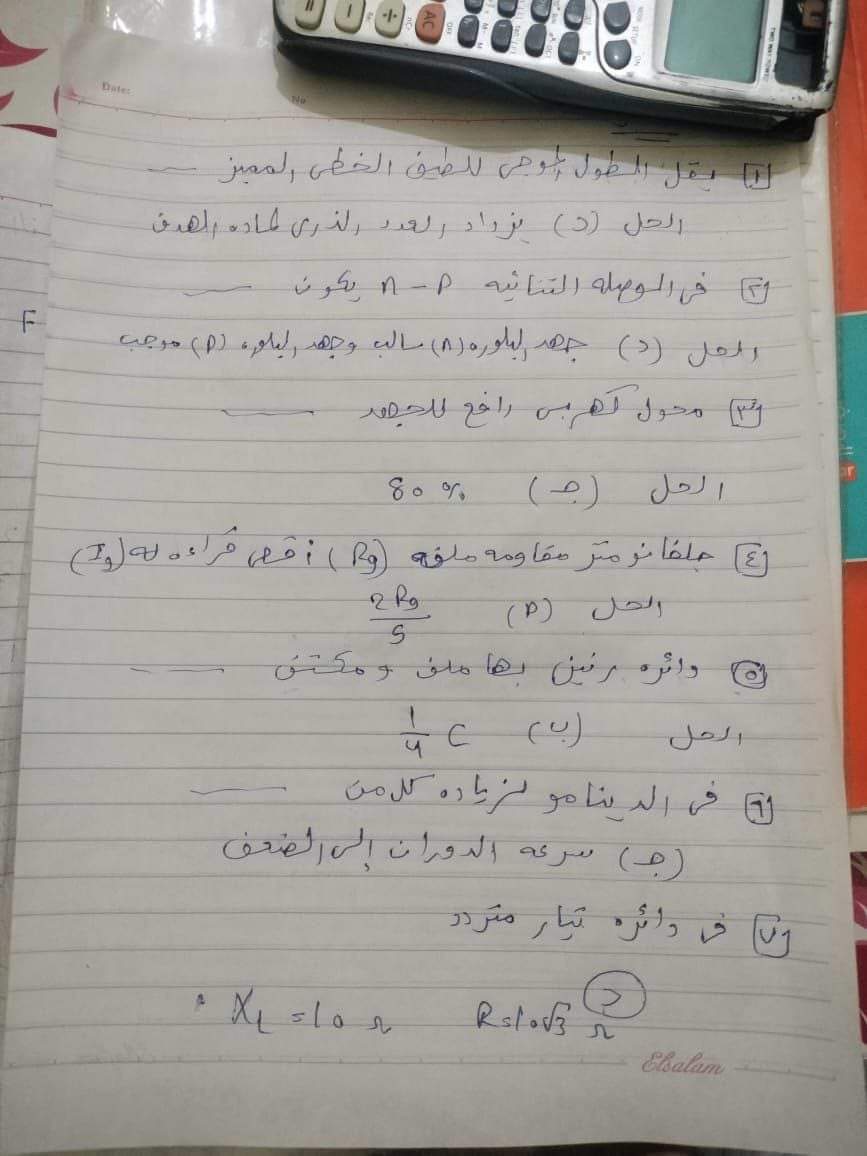 Date:
No
١ يقل الطول الموجى للطيف الخطى المميز
الحل (د) يزداد العدد الذرى لمادة الهدف
٢ فى الوصله الثنائيه n-p يكون
الحل (د) جهد البلوره (n) سالب وجهد البلوره (p) موجب
٣ محول كهربى رافع للجهد
الحل (جـ) 80 %
٤ جلفانومتر مقاومه ملفه (Rg) أقصى قراءه له (Ig)
الحل (P) 2Rg/5
٥ دائره رنين بها ملف ومكثف
الحل (ب) 1/4 C
٦ فى الدينامو لزياده كل من
(جـ) سرعه الدوران إلى الضعف
٧ فى دائره تيار متردد
د
R=10√3 Ω XL=10 Ω
Elsalam
F
AC
OFF
ON